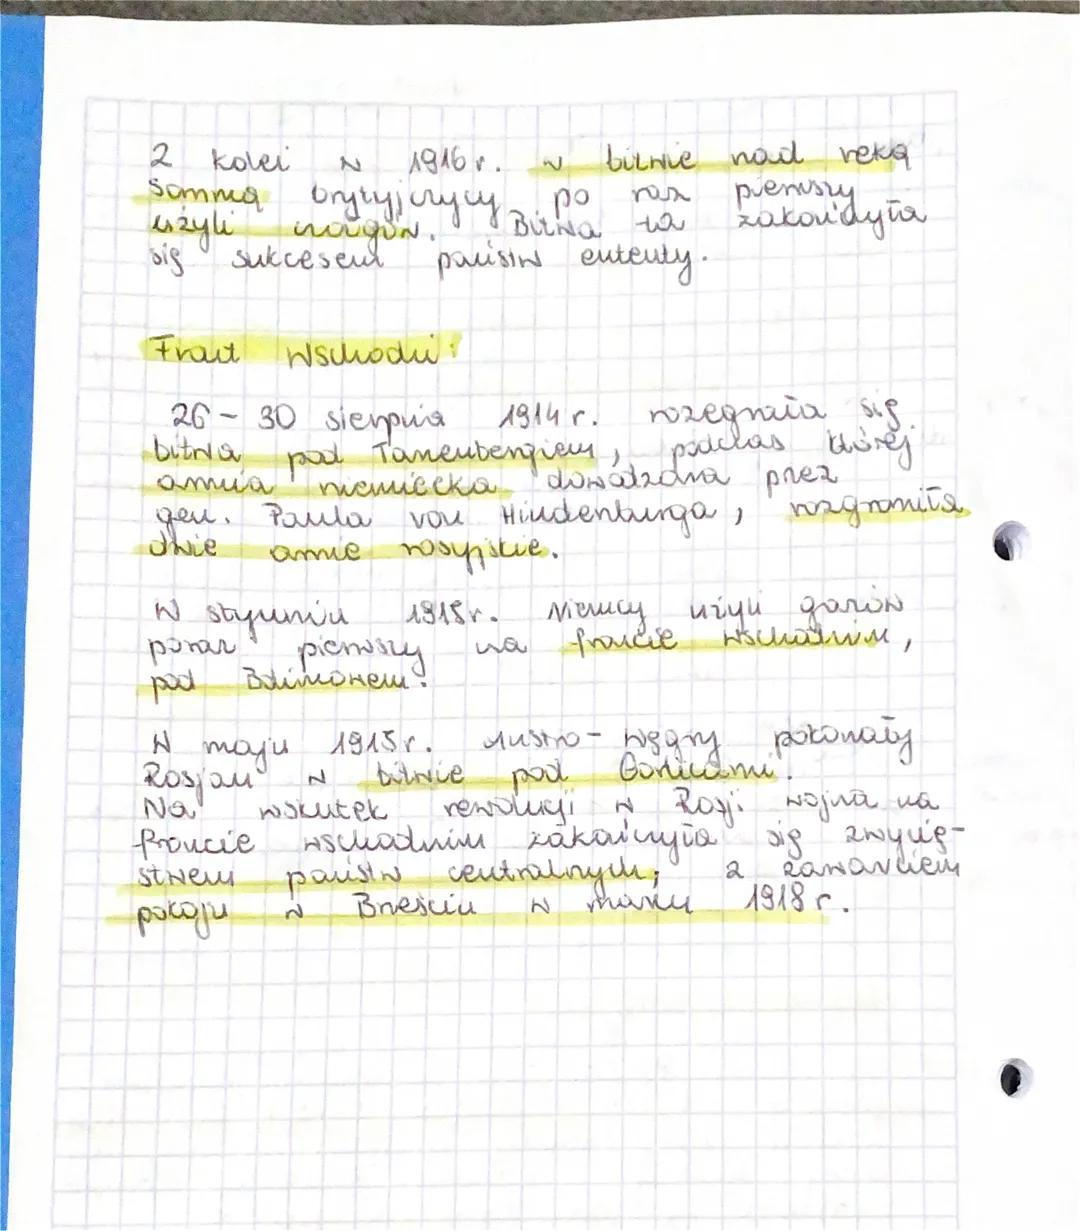 Z kolei w 1916 r. w bitwie nad reką
Sommą brytyjczycy po raz pierwszy
użyli czołgów. Bitwa ta zakończyła
się sukcesem państw ententy.
Front Wschodni:
26 - 30 sierpnia 1914 r. rozegrała się
bitwa pod Tannenbergiem, podczas której
armia niemiecka dowodzona przez
gen. Paula von Hindenburga, rozgromiła
dwie armie rosyjskie.
W styczniu 1915r. Niemcy użyli gazów
poraz pierwszy na froncie wschodnim,
pod Bolimowem.
W maju 1915r. Austro-Węgry pokonały
Rosjan w bitwie pod Gorlicami.
Na wskutek rewolucji w Rosji wojna na
froncie wschodnim zakończyła się zwycię-
stwem państw centralnych, z zawarciem
pokoju w Brześciu w marcu 1918 r.